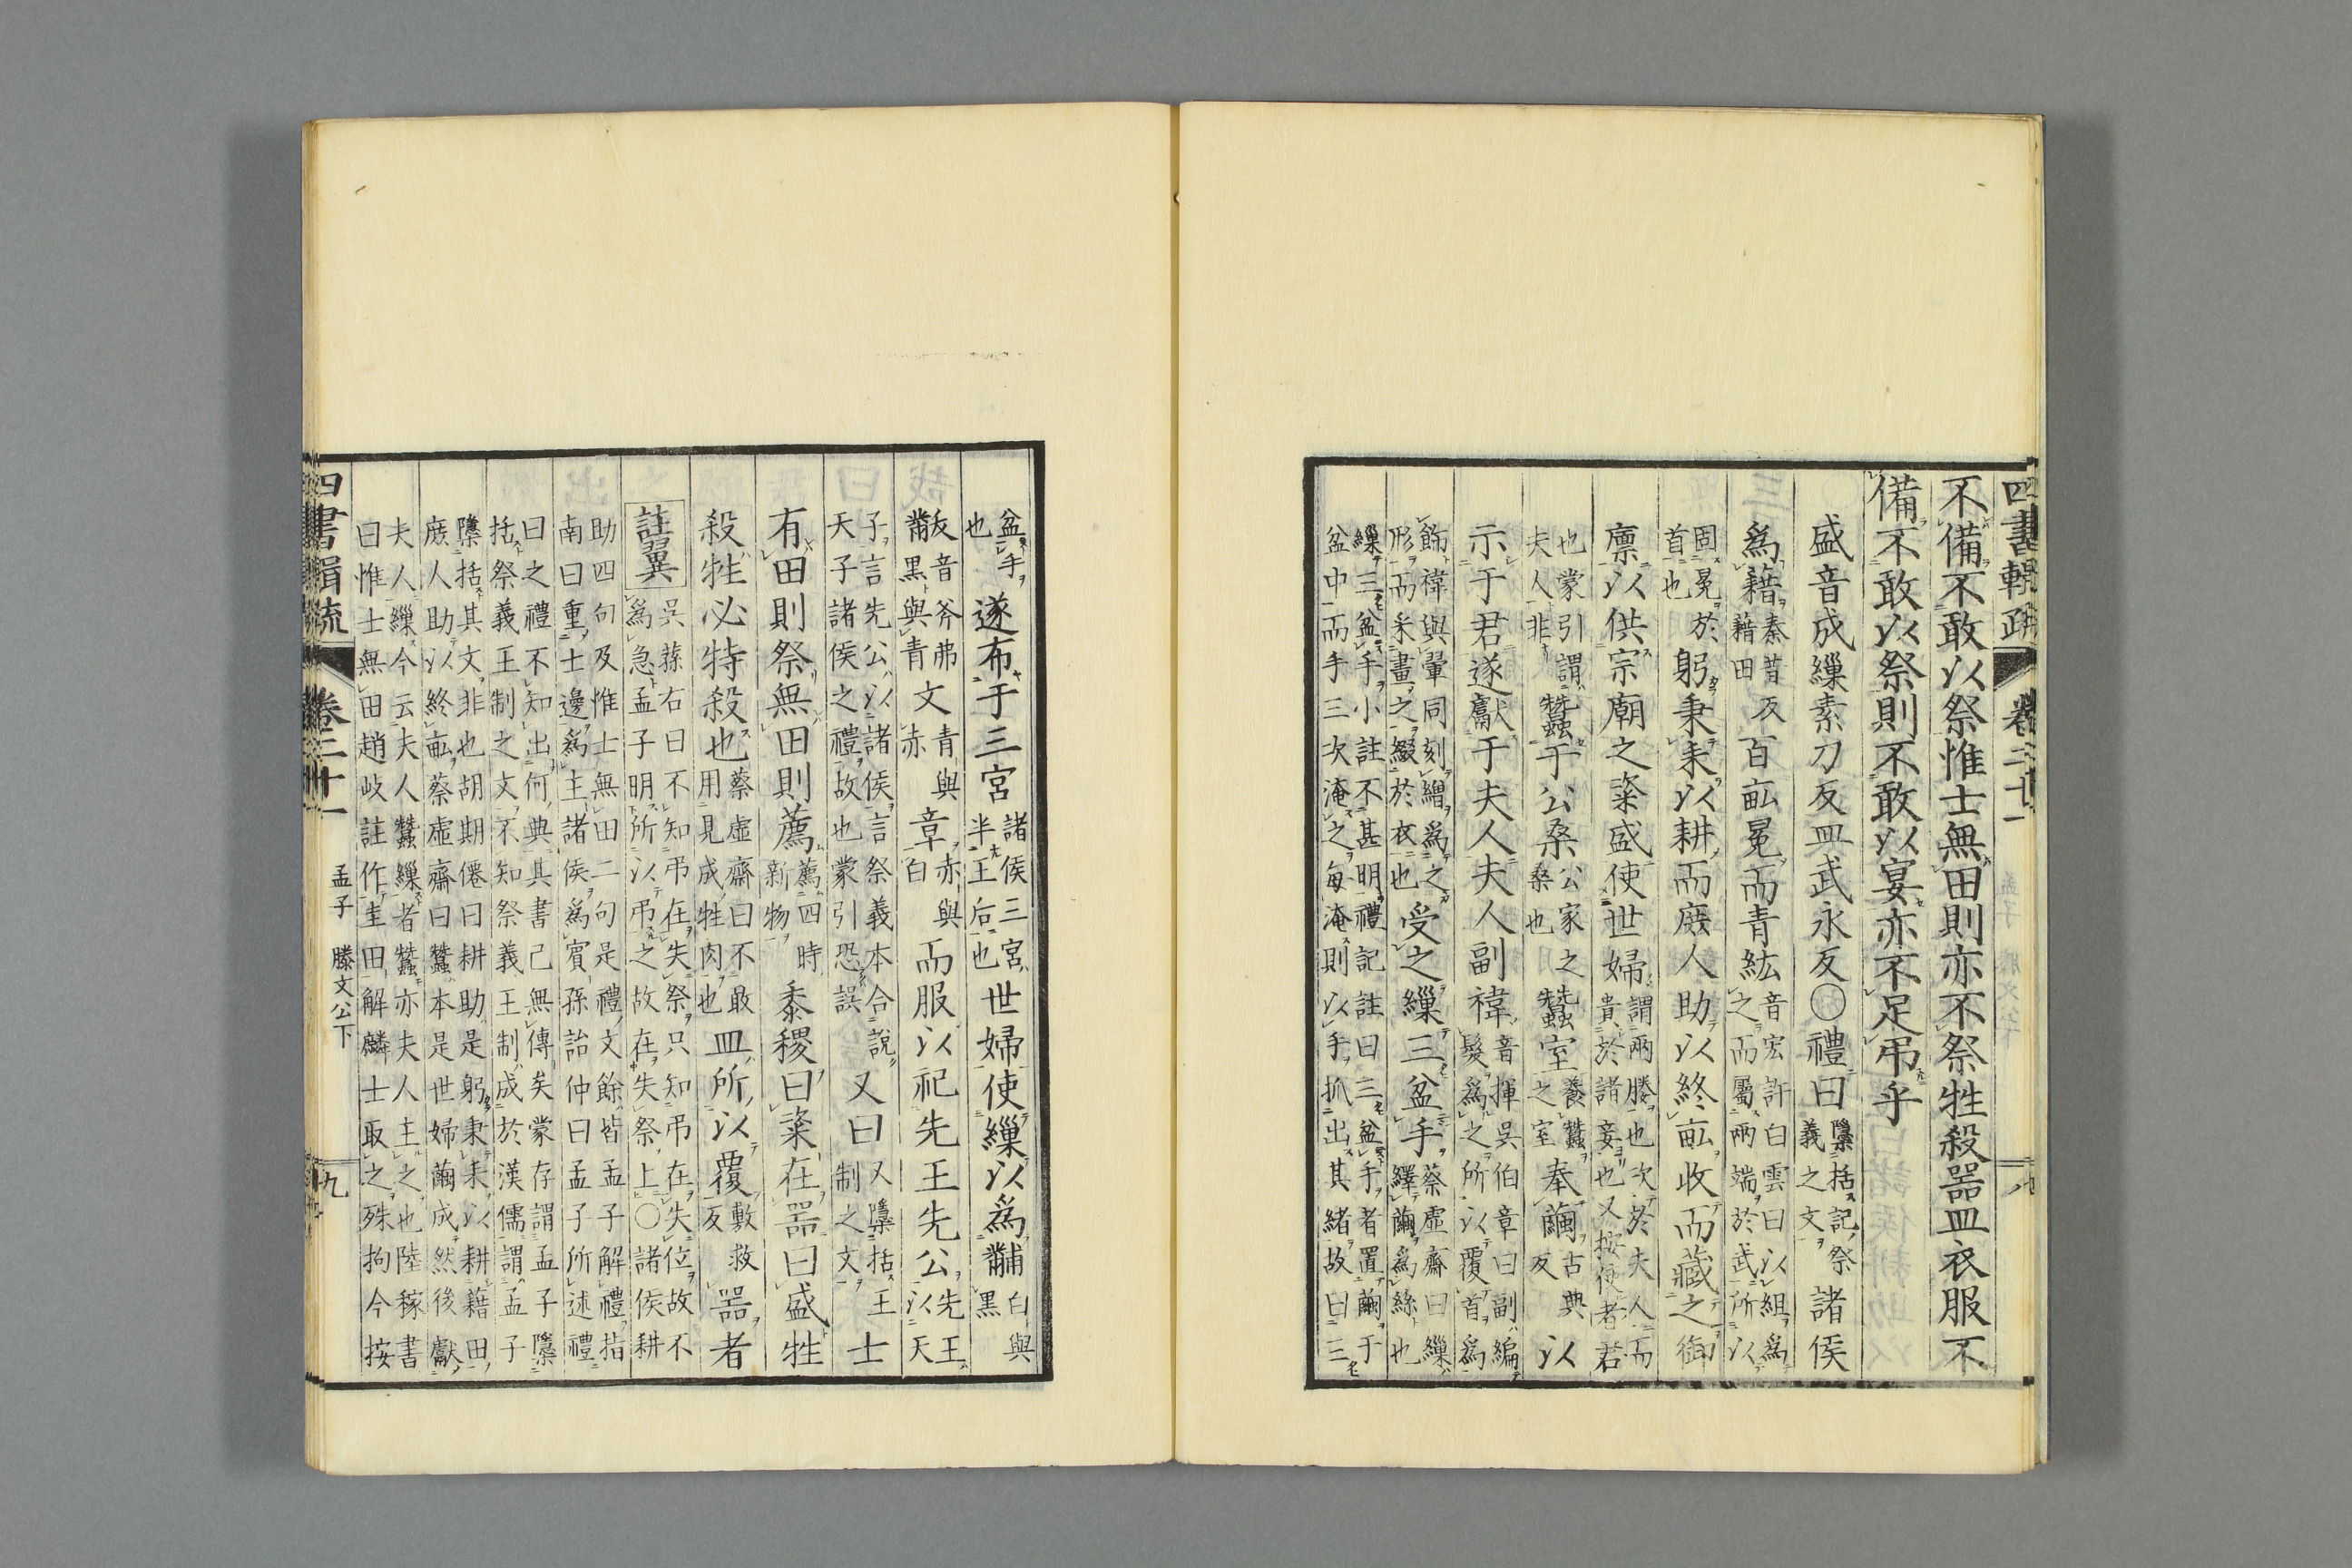 四書輯疏 卷二十一
不備不敢以祭惟士無田則亦不祭牲殺噐皿衣服不
備不敢以祭則不敢以宴亦不足弔乎
盛音成繅素刀反皿武永反〇禮曰隱括記祭義之文諸侯
爲藉秦昔反藉田百畝冕而青紘音宏許白雲曰以組爲之而屬兩端於武所以
固冕於首也躬秉耒以耕而庶人助以終畝收而藏之御
廪以供宗廟之粢盛使世婦謂兩媵也次於夫人而貴於諸妾也又按使者君
也蒙引謂夫人非蠶于公桑公家之桑也蠶室養蠶之室奉繭古典反以
示于君遂獻于夫人夫人副褘音揮吳伯章曰副編髮爲之所以覆首爲
飾褘與翬同刻繒爲之形而采畫之綴於衣也受之繅三盆手蔡虛齋曰繅繹繭爲絲也
繅三盆手小註不甚明禮記註曰三盆手者置繭于
盆中而手三次淹之每淹則以手抓出其緒故曰三
盆手也遂布于三宮諸侯三宮半王后也世婦使繅以爲黼白與黑
反音斧黻黑與青弗文青與赤章赤與白而服以祀先王先公先王以天
子言先公以諸侯言祭義本合天子諸侯之禮故也蒙引恐誤說又曰又隱括王制之文士
有田則祭無田則薦薦四時新物黍稷曰粢在噐曰盛牲
殺牲必特殺也蔡虛齋曰不敢用見成牲肉也皿所以覆敷救反噐者
註翼吳蓀右曰不知弔在失祭只知弔在失位故不爲急孟子明所以弔之故在失祭上〇諸侯耕
助四句及惟士無田二句是禮文餘皆孟子解禮指
南曰重士邊爲主諸侯爲賓孫詒仲曰孟子所述禮
曰之禮不知出何典其書已無傳矣蒙存謂孟子隱
括祭義王制之文不知祭義王制成於漢儒謂孟子
隱括其文非也胡期僊曰耕助是躬秉耒以耕藉田
庶人助以終畝蔡虛齋曰蠶本是世婦繭成然後獻
夫人繅今云夫人蠶繅者蠶亦夫人主之也陸稼書
曰惟士無田趙岐註作圭田解麟士取之殊拘今按
四書輯疏 卷二十一 孟子 滕文公下 九